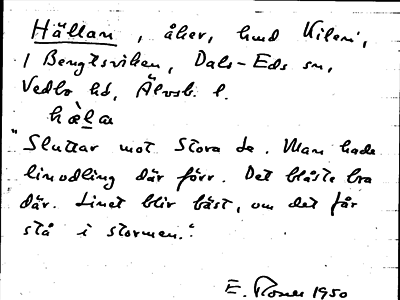 Hällan, åker, hmd Kilen,
i Bengtsviken, Dals-Eds sn,
Vedbo hd, Älvsb. l.
hàla
"Sluttar mot Stora Le. Man hade
linodling där förr. Det blåste bra
där. Linet blir bäst, om det får
stå i stormen."
E. 1950